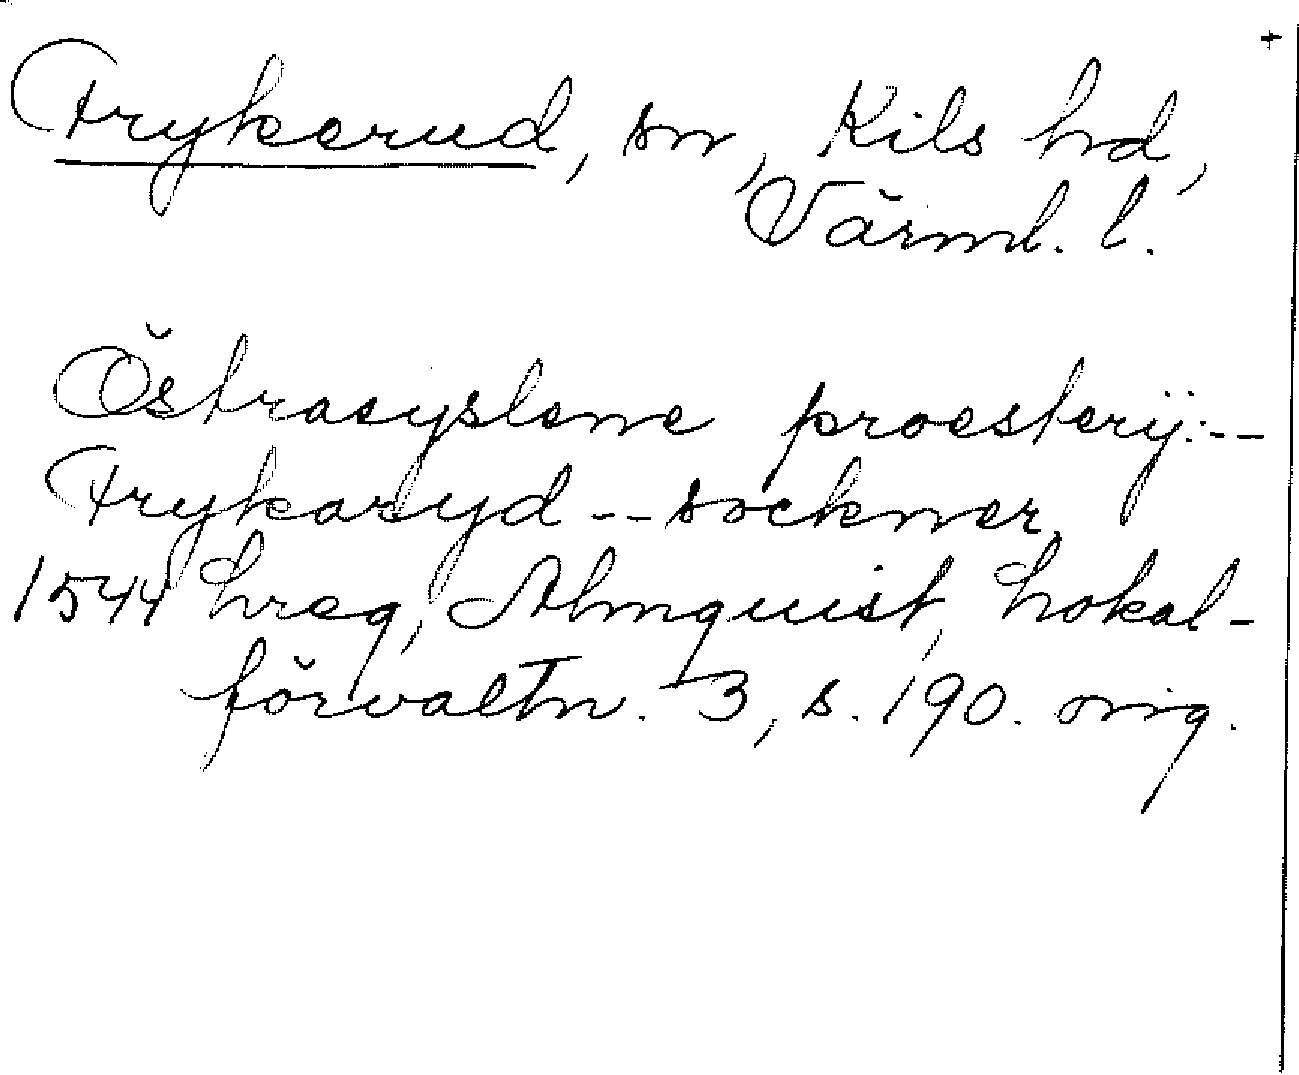 +
Frykerud, sn, Kils hd,
Värml. l.
Östrasyslene proesterij: --
Frykasyd -- sockner
1544 hreg, Almquist, Lokal-
förvaltn. 3, s. 190. orig.